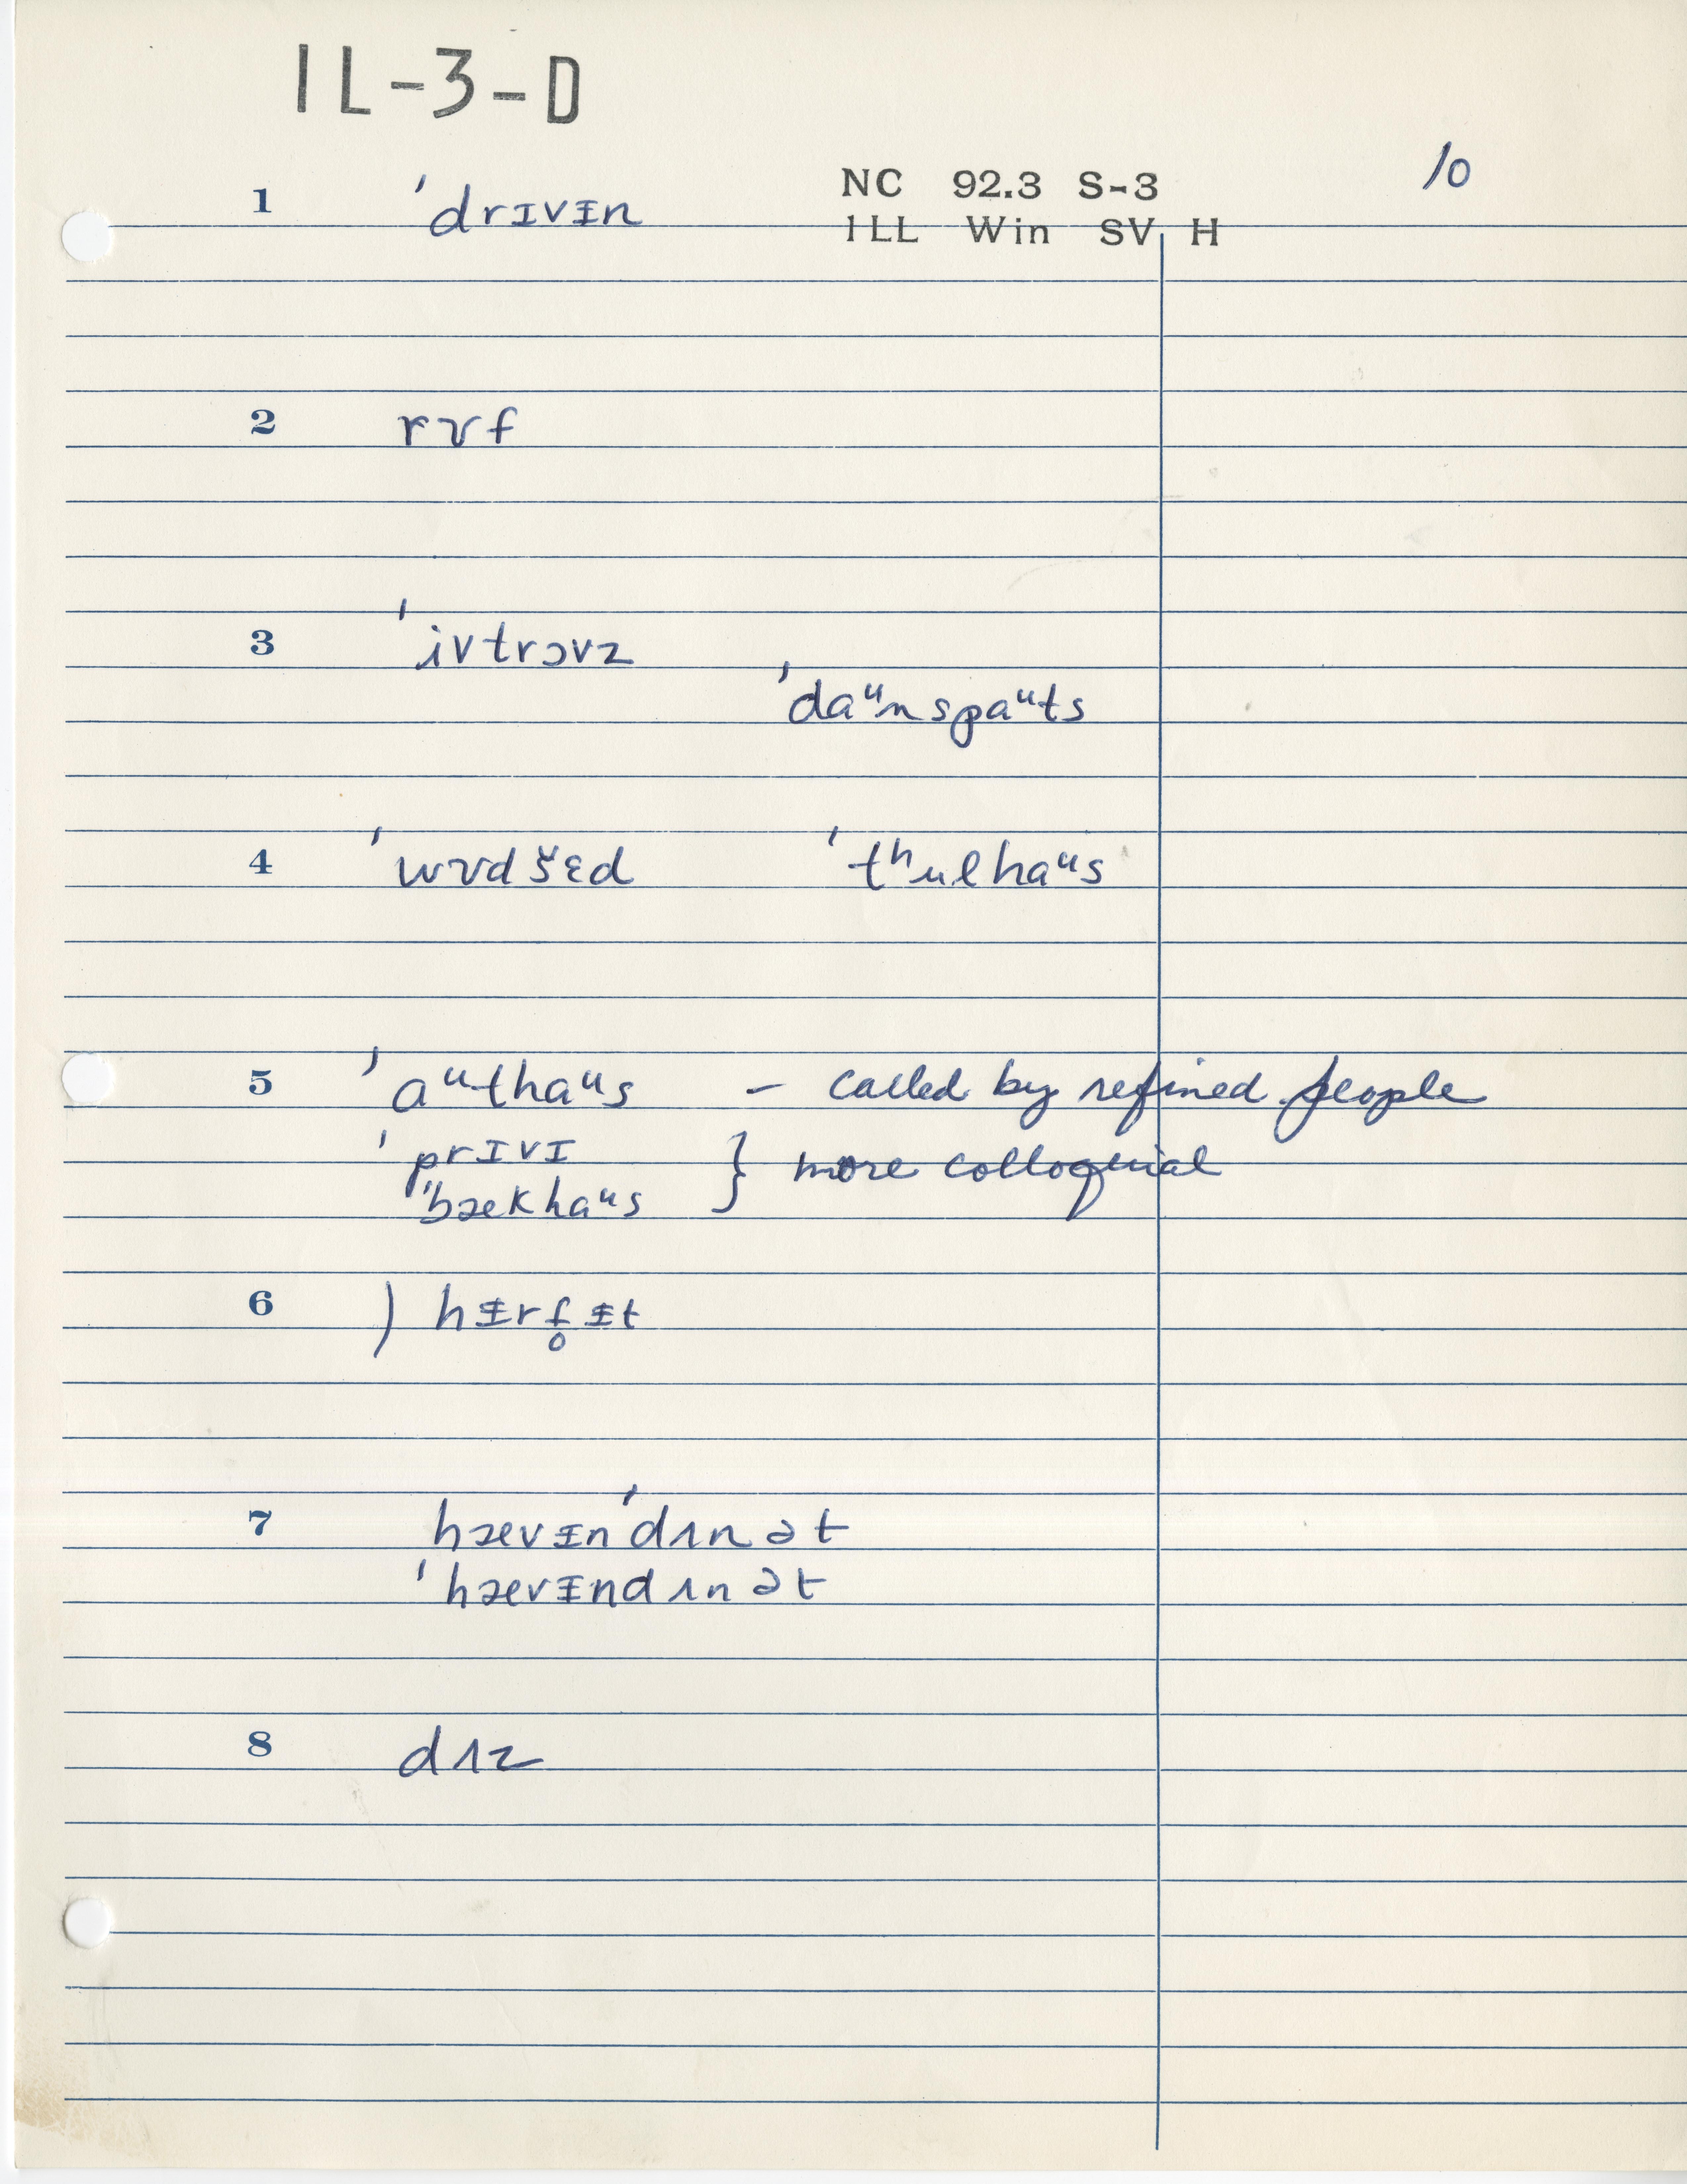 IL-3-D
10
NC 92.3 S-3
ILL Win SV H
1 ˈdrɪvᵻn
2 rʊf
3 ˈivtrɔvz
ˈdaᵘnspaᵘts
4 ˈwʊdšɛd ˈtʰulhaᵘs
5 ˈaᵘthaᵘs – called by refined people
ˈprɪvɪ } more colloquial
ˈbækhaᵘs
6 ) hᵻrf̥ᵻt
7 hævᵻnˈdʌnət
ˈhævᵻndʌnət
8 dʌz